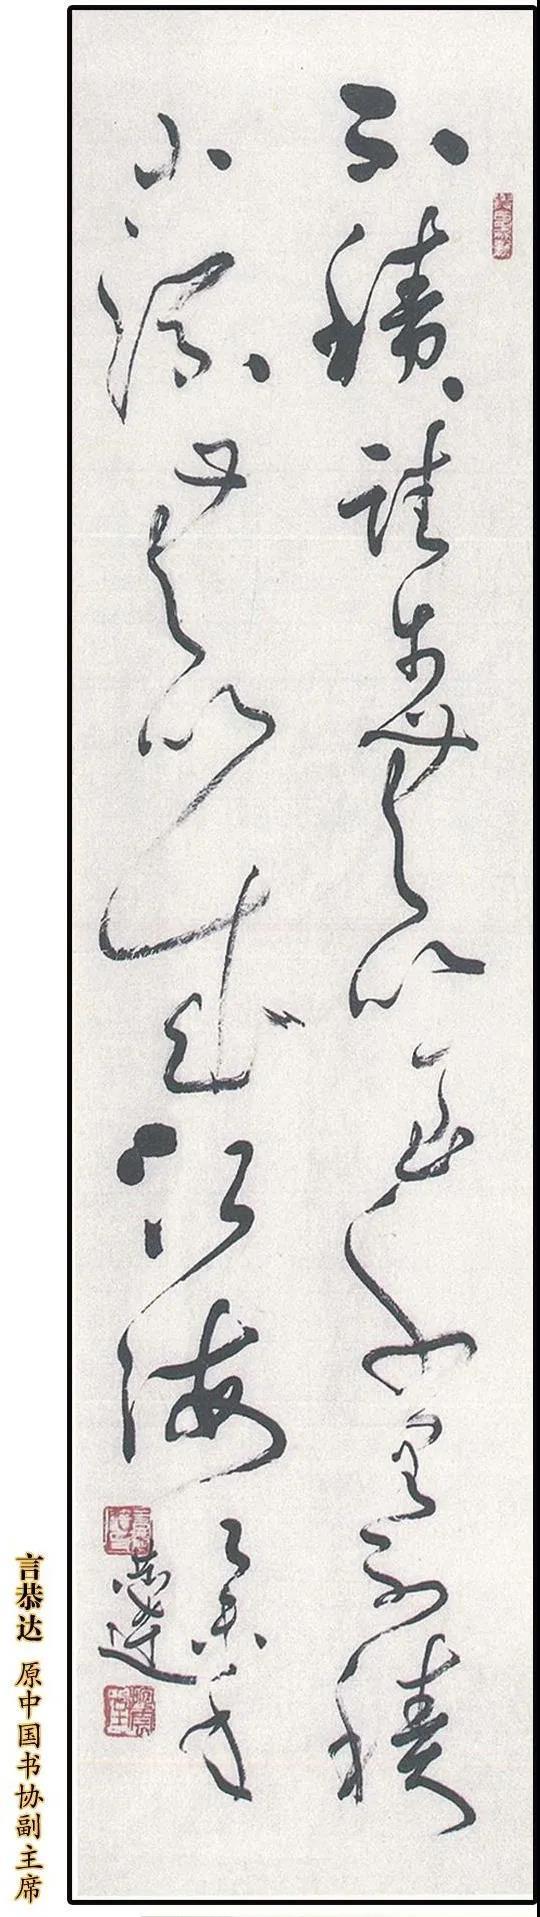 不積跬步無以至千里不積
小流無以成江海
乙未年
恭達
言恭达 原中国书协副主席